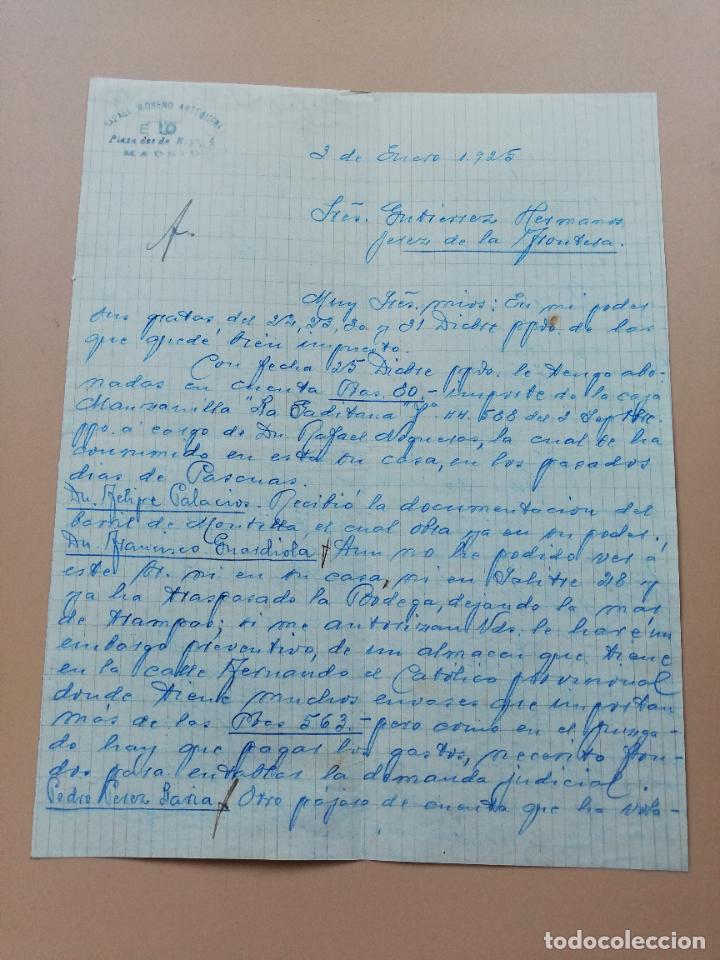 RAFAEL MORENO ANTEQUERA
Plaza dos de Mayo, 4
MADRID
3 de Enero 1.925
Sres. Gutierrez Hermanos
Jerez de la Frontera.
Muy Sres. mios: En mi poder
sus gratas, del 22, 23, 30 y 31 Dicbre ppdo. de las
que quedé bién impuesto.
Con fecha 25 Dicbre ppdo. le tengo abo-
nadas en cuenta Ptas. 80,- importe de la caja
Manzanilla "La Gaditana" 44.588 del 2 Sepbre.
ppo. a cargo de Dn. Rafael Nogueras, la cual se ha
consumido en esta su casa, en los pasados
dias de Pascuas.
Dn. Felipe Palacios. Recibió la documentación del
barril de Montilla, el cual obra ya en su poder.
Dn. Francisco Guardiola, Aun no he podido ver á
este Sr. ni en su casa, ni en Salitre 28 y
ya ha traspasado la Bodega, dejando la mar
de trampas; si me autorizan Vds. le haré un
embargo preventivo, de un almacen que tiene
en la calle Fernando el Católico provisional
donde tiene muchos envases que importan
más de las Ptas 563,- pero como en el juzga-
do hay que pagar los gastos, necesito fon-
dos para entablar la demanda judicial.
Pedro Perez Otro pájaro de cuenta que ha vola-
todocoleccion
todocoleccion.net